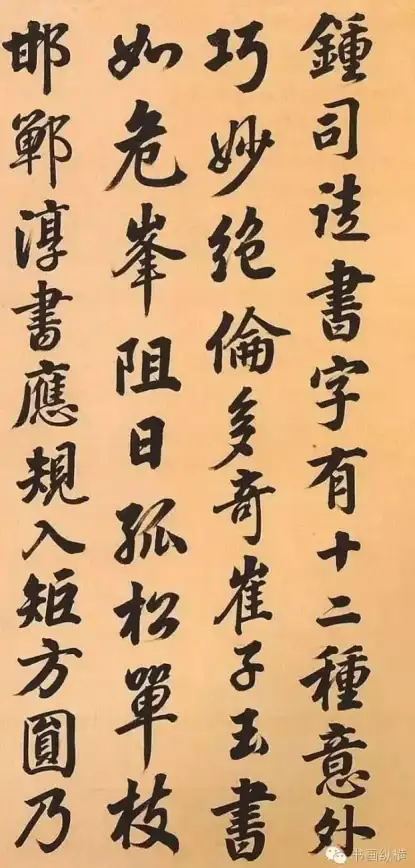 鍾司徒書字有十二種意外
巧妙絕倫多奇崔子玉書
如危峯阻日孤松單枝
邯鄲淳書應規入矩方圓乃
书画纵横